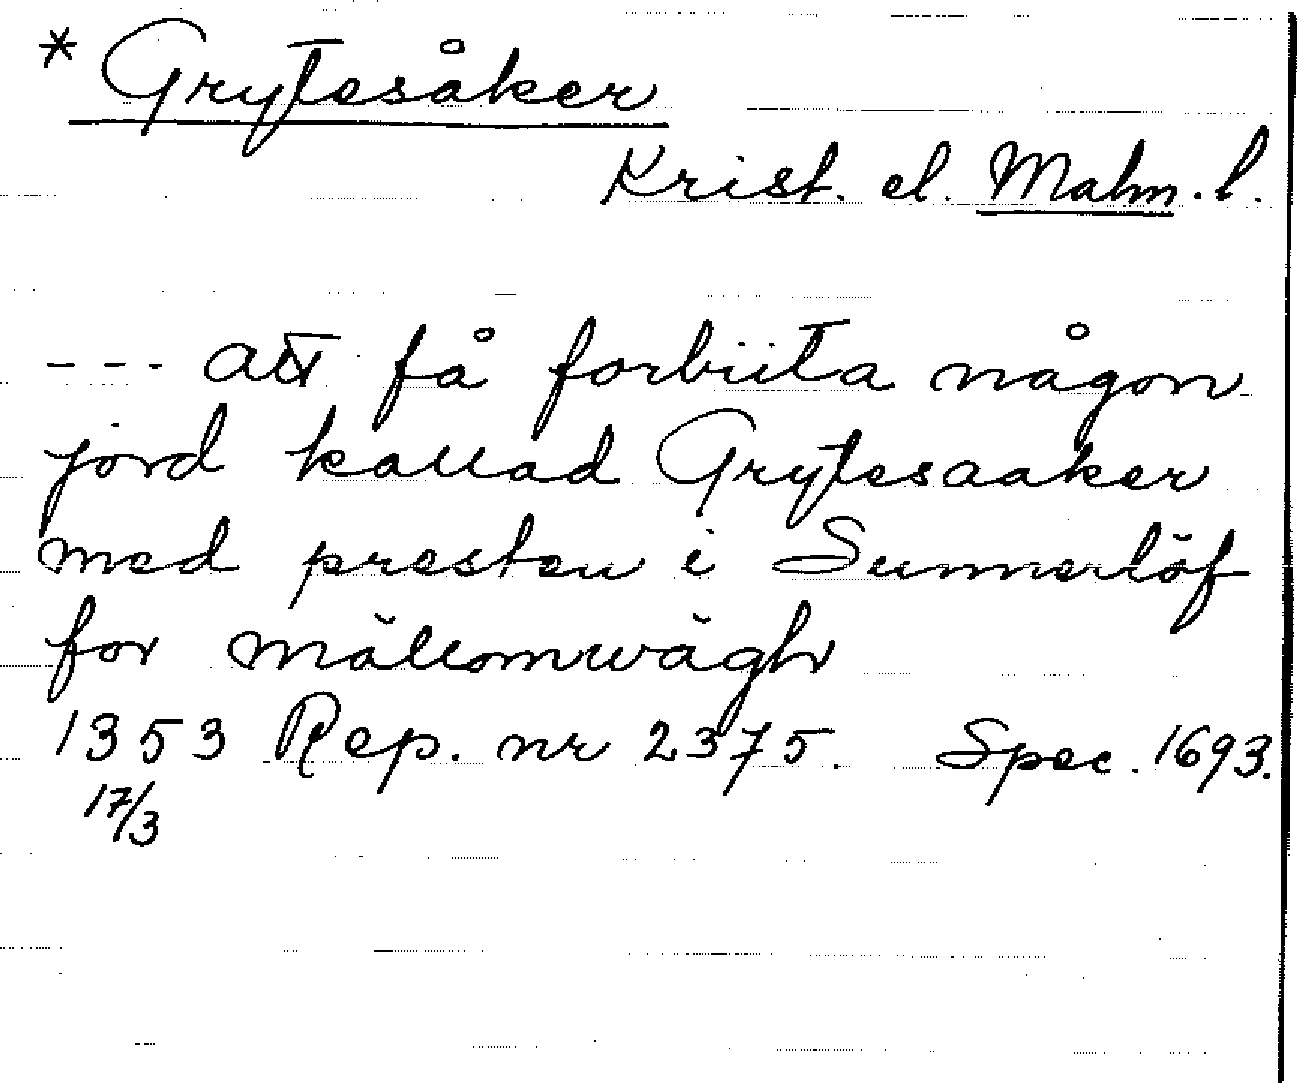 * Grytesåker
Krist. el. Malm. l.
- - - att få forbiita någon
jord kallad Grytesaaker
med presten i Sunnerlöf
for mällomwägh
1353 Rep. nr 2375. Spec. 1693.
17/3